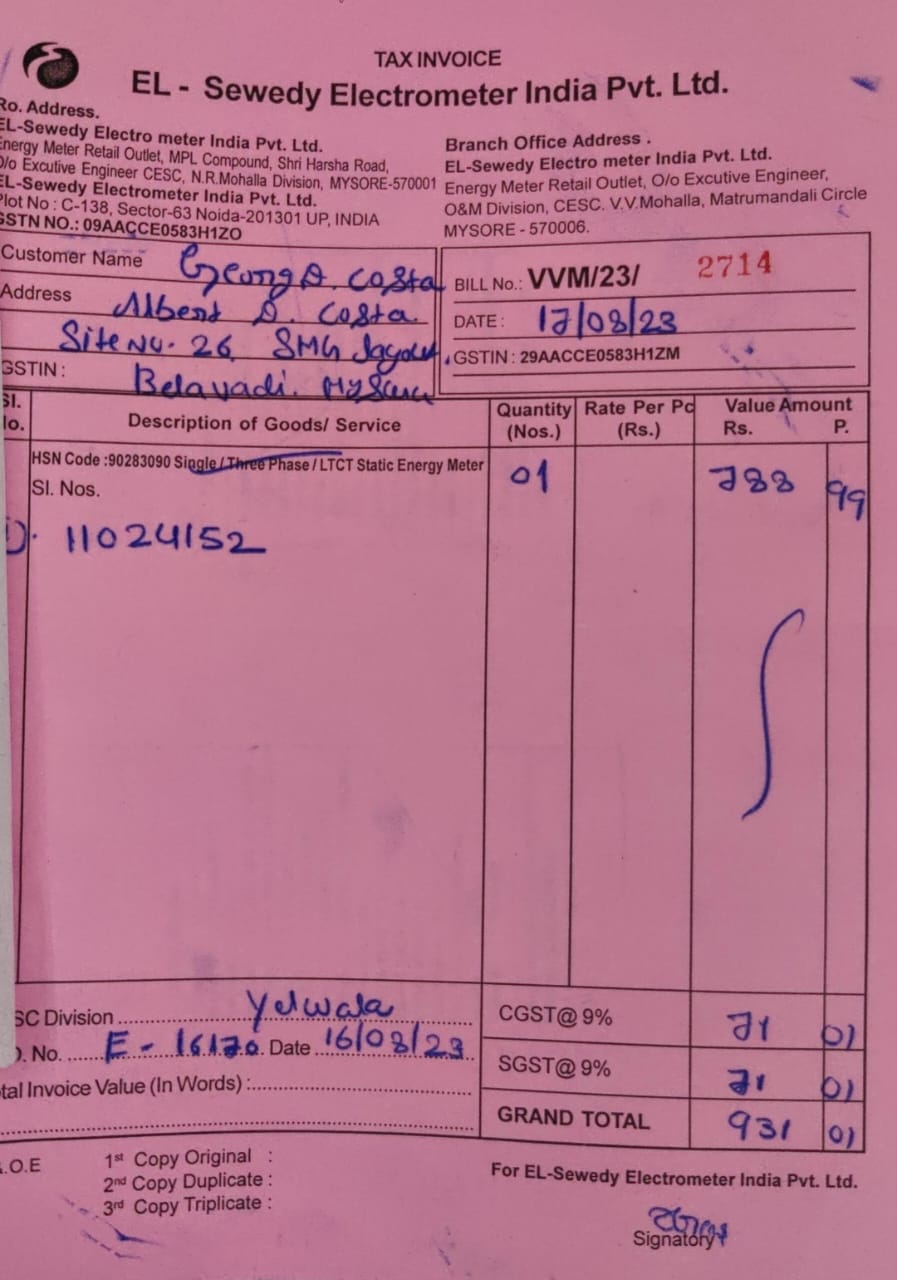 TAX INVOICE
EL - Sewedy Electrometer India Pvt. Ltd.
Ro. Address.
EL-Sewedy Electro meter India Pvt. Ltd.
Energy Meter Retail Outlet, MPL Compound, Shri Harsha Road,
O/o Excutive Engineer CESC, N.R.Mohalla Division, MYSORE-570001
EL-Sewedy Electrometer India Pvt. Ltd.
Plot No : C-138, Sector-63 Noida-201301 UP, INDIA
GSTN NO.: 09AACCE0583H1ZO
Branch Office Address .
EL-Sewedy Electro meter India Pvt. Ltd.
Energy Meter Retail Outlet, O/o Excutive Engineer,
O&M Division, CESC. V.V.Mohalla, Matrumandali Circle
MYSORE - 570006.
Customer Name Georg D. Costa
Address Albert D. Costa.
Site No. 26, SMG Layout,
GSTIN : Belavadi.
BILL No.: VVM/23/ 2714
DATE : 17/08/23
GSTIN : 29AACCE0583H1ZM
Sl. No. Description of Goods/ Service Quantity (Nos.) Rate Per Pc (Rs.) Value Amount Rs. P.
HSN Code :90283090 Single / Three Phase / LTCT Static Energy Meter 01 788 99
Sl. Nos.
1). 11024152
SC Division Yelwala
. No. E - 16170. Date 16/08/23
tal Invoice Value (In Words) :
CGST@ 9% 71 01
SGST@ 9% 71 01
GRAND TOTAL 931 01
.O.E
1st Copy Original :
2nd Copy Duplicate :
3rd Copy Triplicate :
For EL-Sewedy Electrometer India Pvt. Ltd.
Signatory